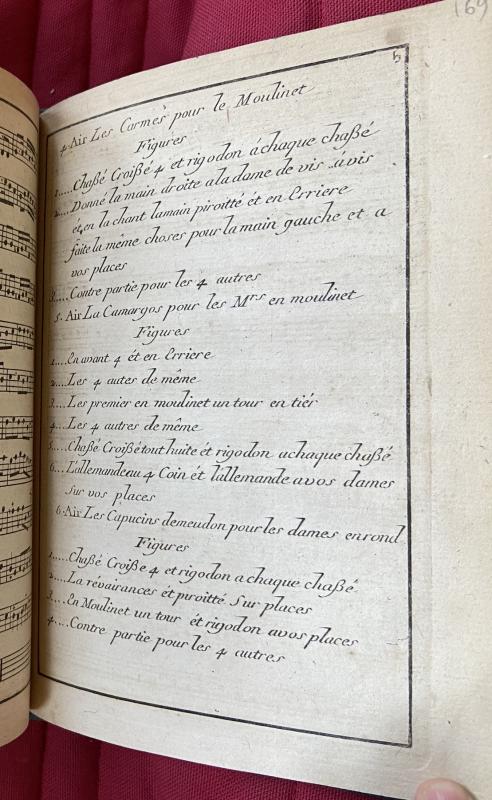 169
5
4. Air Les Carmes pour le Moulinet
Figures
1.... Chaßé Croißé 4 et rigodon áchaque chaßé
2.... Donné la main droite a la dame de vis avis
ét en la chant lamain piroitté ét en Erriere
faite la même choses pour la main gauche et a
vos places
3.... Contre partie pour les 4 autres
5. Air La Camargos pour les Mrs en moulinet
Figures
1.... En avant 4 ét en Erriere
2.... Les 4 autes de même
3.... Les premier en moulinet un tour en tiér
4.... Les 4 autres de même
5.... Chaßé Croißé tout huite ét rigodon achaque chaßé
6... L'allemande au 4 Coin ét lallemande avos dames
sur vos places
6. Air Les Capucins demeudon pour les dames en rond
Figures
1.... Chaßé Croiße 4 et rigodon a chaque chaßé
2.... La révairances ét piroitté sur places
3.... En Moulinet un tour ét rigodon avos places
4.... Contre partie pour les 4 autres